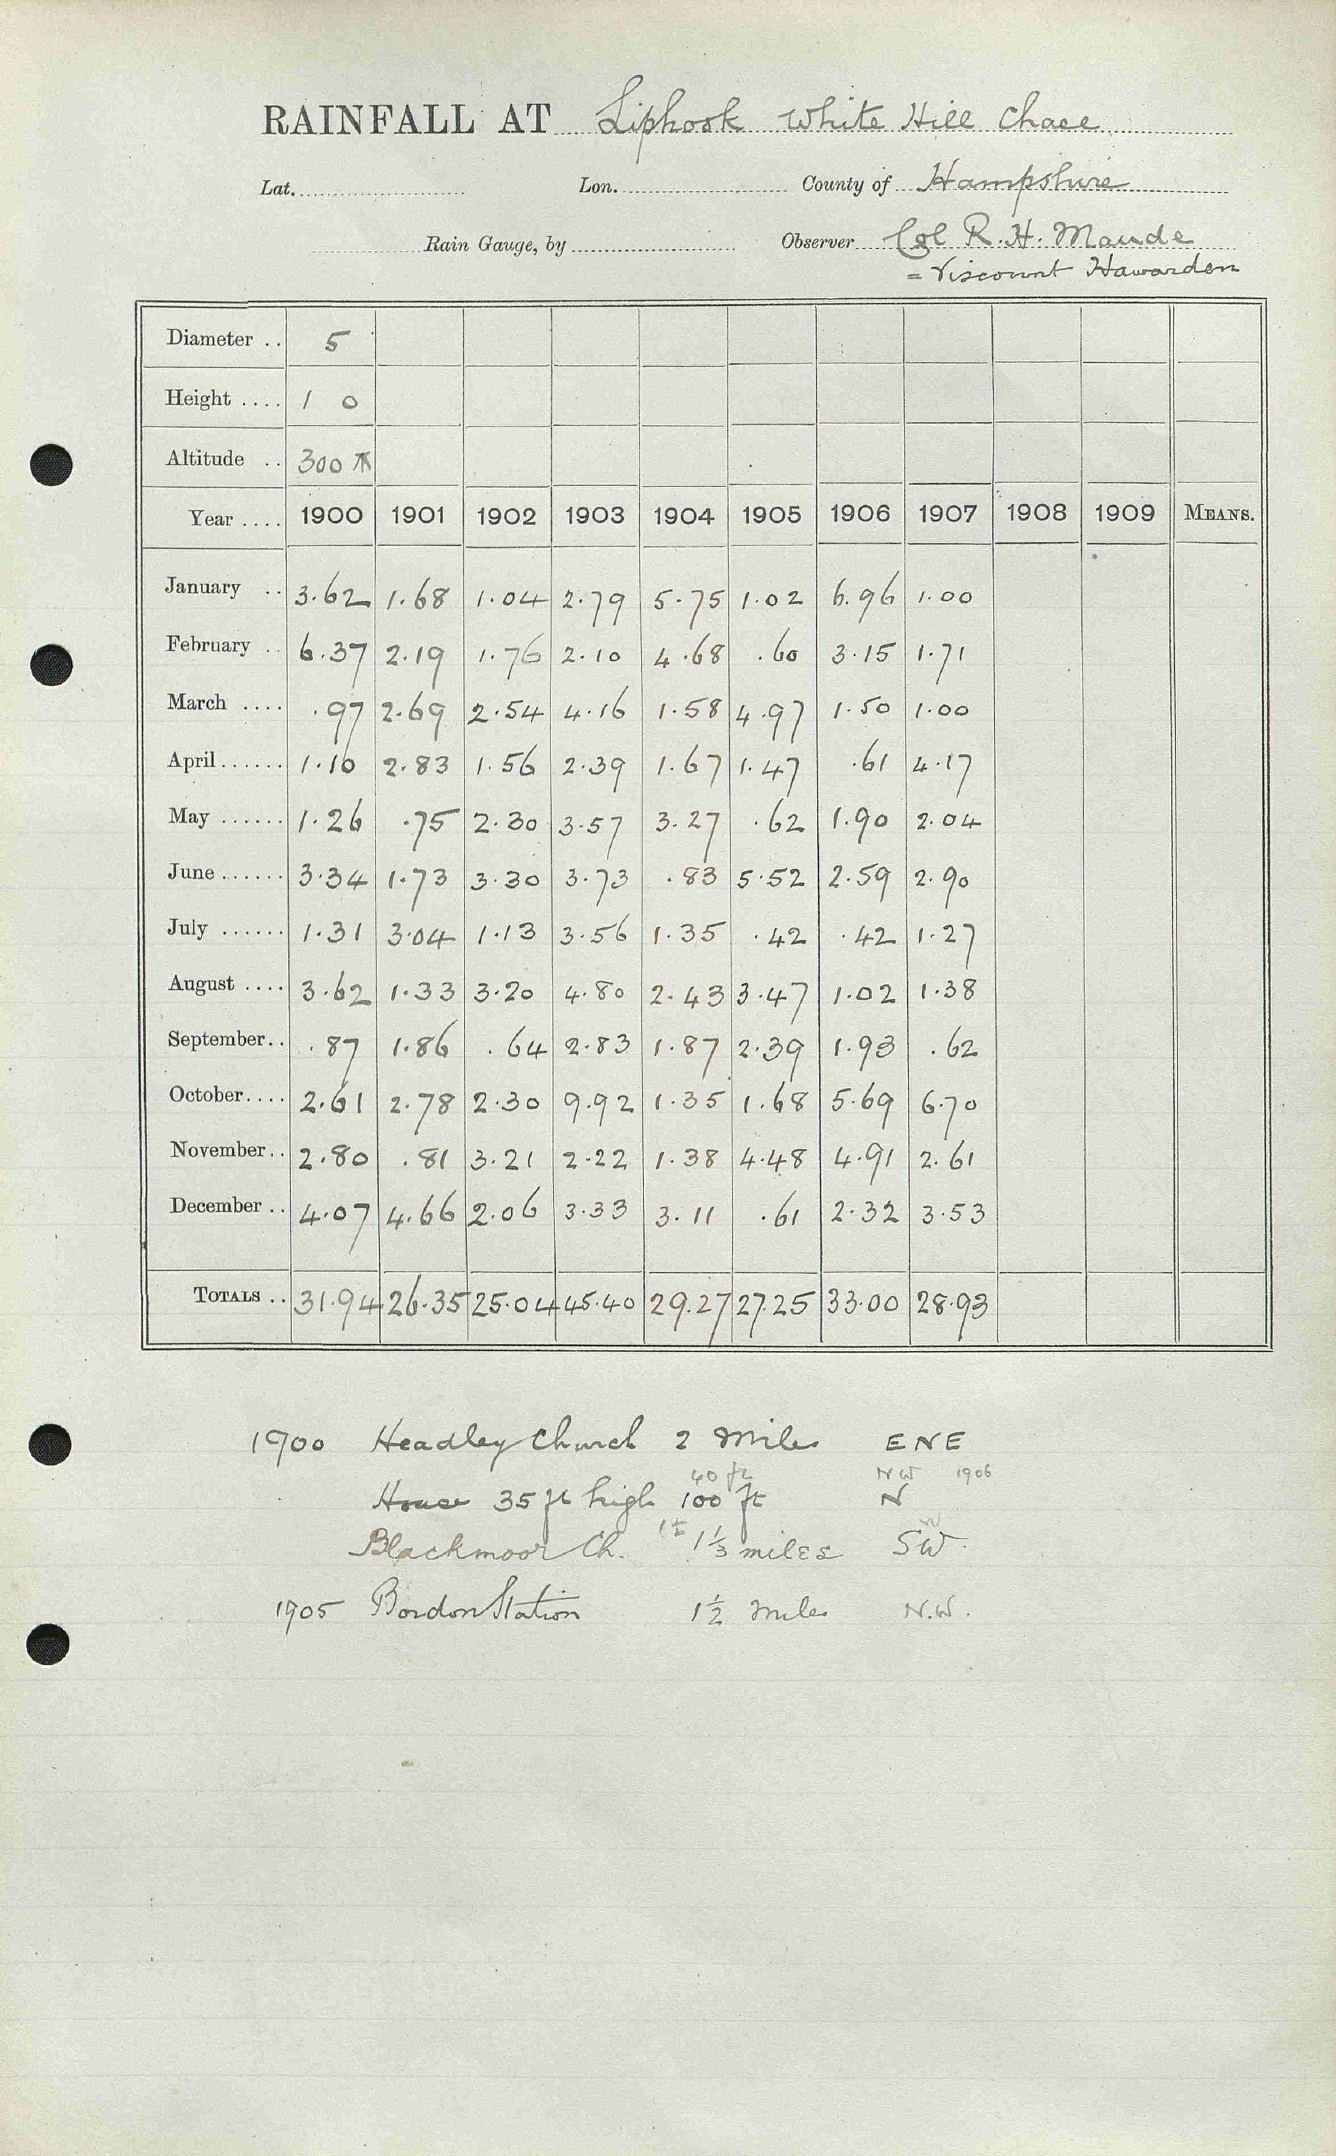 RAINFALL AT Liphook White Hill Chase
Lat. Lon. County of Hampshire
Rain Gauge, by Observer Col R. H. Maude
= Viscount Hawarden
Diameter .. 5
Height .... 1 0
Altitude .. 300
Year .... 1900 1901 1902 1903 1904 1905 1906 1907 1908 1909 MEANS.
January .. 3.62 1.68 1.04 2.79 5.75 1.02 6.96 1.00
February .. 6.37 2.19 1.76 2.10 4.68 .60 3.15 1.71
March .... .97 2.69 2.54 4.16 1.58 4.97 1.50 1.00
April ...... 1.10 2.83 1.56 2.39 1.67 1.47 .61 4.17
May ...... 1.26 .75 2.30 3.57 3.27 .62 1.90 2.04
June ...... 3.34 1.73 3.30 3.73 .83 5.52 2.59 2.90
July ...... 1.31 3.04 1.13 3.56 1.35 .42 .42 1.27
August .... 3.62 1.33 3.20 4.80 2.43 3.47 1.02 1.38
September .. .87 1.86 .64 2.83 1.87 2.39 1.93 .62
October .... 2.61 2.78 2.30 9.92 1.35 1.68 5.69 6.70
November .. 2.80 .81 3.21 2.22 1.38 4.48 4.91 2.61
December .. 4.07 4.66 2.06 3.33 3.11 .61 2.32 3.53
TOTALS .. 31.94 26.35 25.04 45.40 29.27 27.25 33.00 28.93
1900 Headley Church 2 Miles ENE
40 ft NW 1906
House 35 ft high 100 ft N
Blackmoor Ch. 1½ 1⅓ miles SW
1905 Bordon Station 1½ Miles N.W.